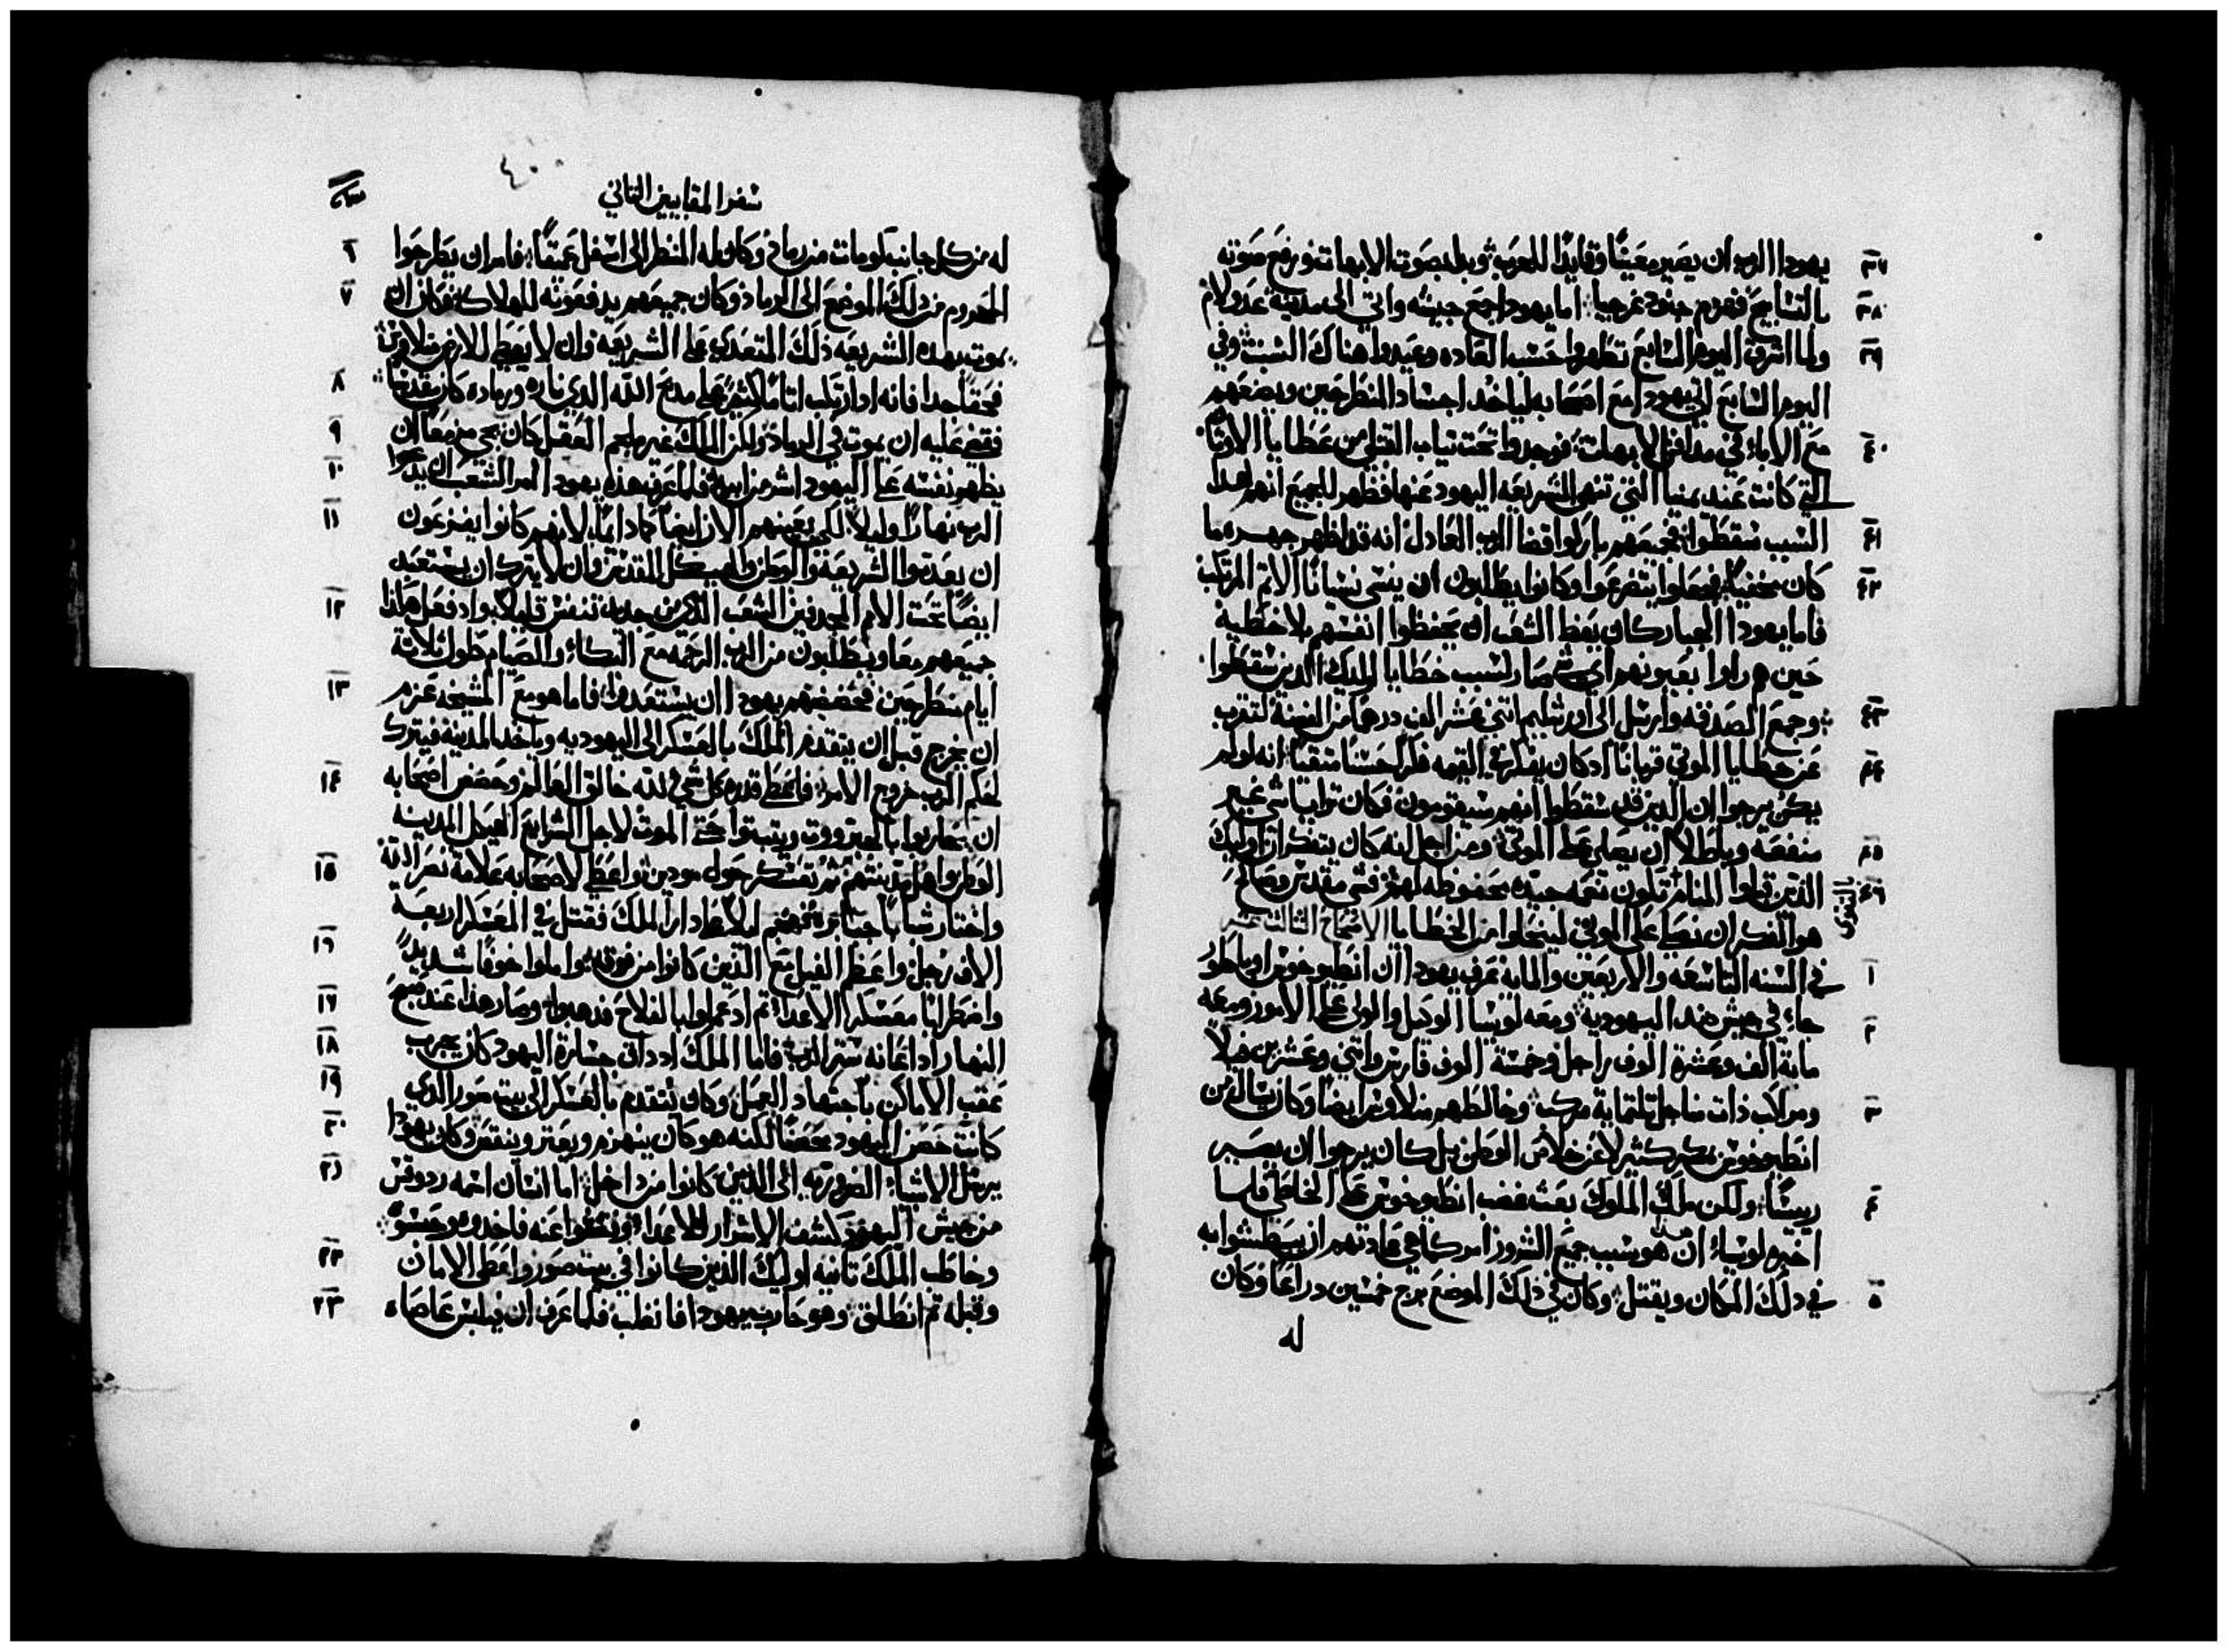 ٣٧ يهودا الرب ان يصير معينًا وقايدًا للحرب وبدا بصوت الابهات ورفع صوته
٣٨ بالتسابيح فهزم جنود غرجيا اما يهودا جمع جيشه واتي الى مدينة عدولام
٣٩ ولما اشرق اليوم السابع تطهروا حسب العاده وعيدوا هناك السبت وفي
اليوم التابع اتي يهودا مع اصحابه لياخد اجساد المنطرحين ويضعهم
٤٠ مع الاباء في مدافن الابهات فوجدوا تحت تياب القتلي من عطايا الاوتان
التي كانت عند يمنيا التي تنهى الشريعه اليهود عنها فظهر للجميع انهم لهدا
٤١ السبب سقطوا فجميعهم باركوا قضا الرب العادل انه قد اظهر جهره ما
٤٢ كان مخفيًا فجعلوا يتضرعوا وكانوا يطلبون ان ينسى نسيانًا الاتم المرتكب
فاما يهودا الجبار كان يعظ الشعب ان يحفظوا انفسهم بلا خطية
حين هم راوا بعيونهم اي شي صار لسبب خطايا اوليك الدين سقطوا
٤٣ وجمع الصدقه وارسل الى اورشليم اتني عشر الف درهمًا من الفضة لتقرب
٤٤ عن خطايا الموتي قربانًا اد كان يفتكر في القيمه فكرًا حسنًا متقيًا انه لو لم
يكن يرجوا ان الدين قد سقطوا انهم سيقومون فكان ترايا شي غير
٤٥ منفعه وباطلًا ان يصلي على الموتي ومن اجل انه كان يتفكر ان اوليك
٤٦ الدين قبلوا المنام تكون نعمه جيده محفوظه لهم فشي مقدس وصالح
هو الفكر ان نصلي على الموتى لينحلوا من الخطايا الاصحاح التالت عشر
١ في السنه التاسعه والاربعين والمايه عرف يهودا ان انطيوخوس اوباطور
٢ جاء في جيش ضد اليهودية ومعه لوسيا الوكيل والولي على الامور ومعه
ماية الف وعشرة الوف راجل وخمسة الوف فارس واتني وعشرين فيلًا
٣ ومراكب ذات مناجل تلتماية مركب وخالطهم منلاوس ايضًا وكان يسال من
انطيوخوس بمكر كتير لا عن خلاص الوطن بل كان يرجوا ان يصير
٤ ريسًا ولكن ملك الملوك بعت غضب انطيوخوس على الخاطي فلما
اخبره لوسيا ان هو سبب جميع الشرور امر كما هي عادتهم ان يبطشوا به
٥ في دلك المكان ويقتل وكان في ذلك الموضع برج خمسين دراعًا وكان
له
سفر المقابيين التاني
له من كل جانب كومات من رماد وكان له المنظر الى اسفل عميقًا فامر ان يطرحوا ٦
المحروم من دلك الموضع الى الرماد وكان جميعهم يدفعونه للهلاك فكان ان ٧
يموت بهده الشريعه ذلك المتعدي على الشريعه وان لا يعطى للارض منلاوس
فحقًا جدا فانه اد ارتكب اتامًا كتيره على مدبح الله الدي ناره ورماده كان مقدسًا ٨
فقضى عليه ان يموت في الرماد ولكن الملك غير ملجم العقل كان يجي مزمعًا ان ٩
يظهر نفسه على اليهود اشر من ابيه فلما عرف هذه يهودا امر الشعب ان يدعوا ١٠
الرب نهارًا وليلًا لكي يعينهم الان ايضًا كما دايمًا لانهم كانوا يفزعون ١١
ان يعدموا الشريعة والوطن والهيكل المقدس وان لا يترك ان يستعبد
ايضًا تحت الامم المجدفين الشعب الدي من جديد تنفس قليلًا فاد فعل هكذا ١٢
جميعهم معا ويطلبون من الرب الرحمه مع البكاء والصيام طول تلاتة
ايام منطرحين فحضضهم يهودا ان يستعدوا فاما هو مع المشيخه عزم ١٣
ان يخرج قبل ان يتقدم الملك بالعسكر الى اليهوديه وياخد المدينه فيترك
لحكم الرب خروج الامر فاعطى قدره كل شي لله خالق العالم وحضض اصحابه ١٤
ان يحاربوا بالجبروت ويتبتوا حتى الموت لاجل الشرايع الهيكل المدينه
الوطن واهل مدينتهم تم تعسكر حول مودين واعطى لاصحابه علامة نصر الله ١٥
واختار شابًا جبابره فهجم ليلًا على دار الملك فقتل في العسكر اربعة
الاف رجل واعظم الفيل مع الذين كانوا من فوقه واملوا خوفًا شديدًا ١٦
واضطرابًا معسكر الاعدا تم اد عملوا بالفلاح فدهبوا وصار هذا عند صبح ١٧
النهار اد اعانه ستر الرب فاما الملك اد داق جسارة اليهود كان يجرب ١٨
عقب الاماكن باجتهاد العمل وكان يتقدم بالعسكر الى بيت صور الدي ١٩
كانت حصن اليهود محصنًا لكنه هو كان ينهزم ويعتر وينتقص وكان يهودا ٢٠
يرسل الاشياء الضروريه الى الذين كانوا من داخل اما انسان اسمه ردوقس ٢١
من جيش اليهود كشف الاسرار للاعداء وفتشوا عنه فاخدوه وحبسوه
وخاطب الملك تانيه اوليك الذين كانوا في بيت صور واعطى الامان ٢٢
وقبله تم انطلق وهو حارب يهودا فانغلب فلما عرف ان فيلبس عاصاه ٢٣